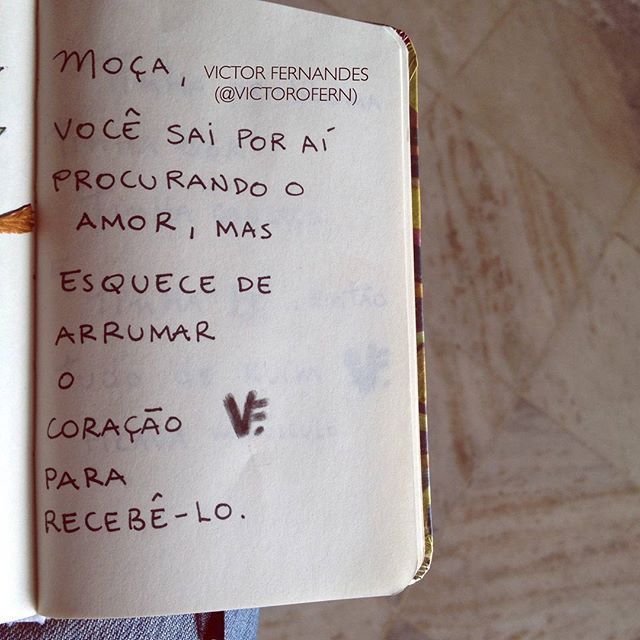 MOÇA,
VICTOR FERNANDES
(@VICTOROFERN)
VOCÊ SAI POR AÍ
PROCURANDO O
AMOR, MAS
ESQUECE DE
ARRUMAR
O
CORAÇÃO VF.
PARA
RECEBÊ-LO.